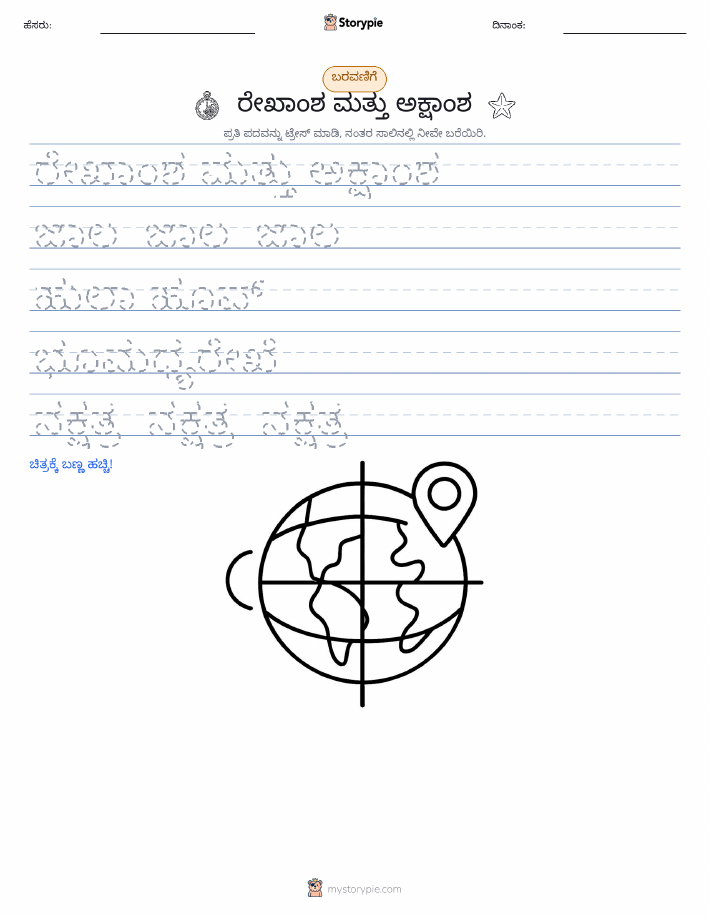 ಹೆಸರು:
Storypie
ದಿನಾಂಕ:
ಬರವಣಿಗೆ
ರೇಖಾಂಶ ಮತ್ತು ಅಕ್ಷಾಂಶ
ಪ್ರತಿ ಪದವನ್ನು ಟ್ರೇಸ್ ಮಾಡಿ, ನಂತರ ಸಾಲಿನಲ್ಲಿ ನೀವೇ ಬರೆಯಿರಿ.
ರೇಖಾಂಶ ಮತ್ತು ಅಕ್ಷಾಂಶ
ಜಾಲ ಜಾಲ ಜಾಲ
ಹುಲಾ ಹೂಪ್
ಭೂಮಧ್ಯರೇಖೆ
ನಕ್ಷತ್ರ ನಕ್ಷತ್ರ ನಕ್ಷತ್ರ
ಚಿತ್ರಕ್ಕೆ ಬಣ್ಣ ಹಚ್ಚಿ!
mystorypie.com